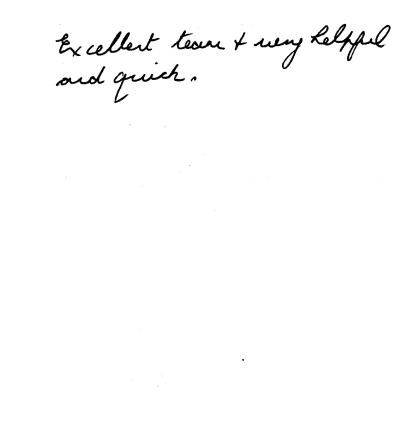 Excellent team + very helpful
and quick.